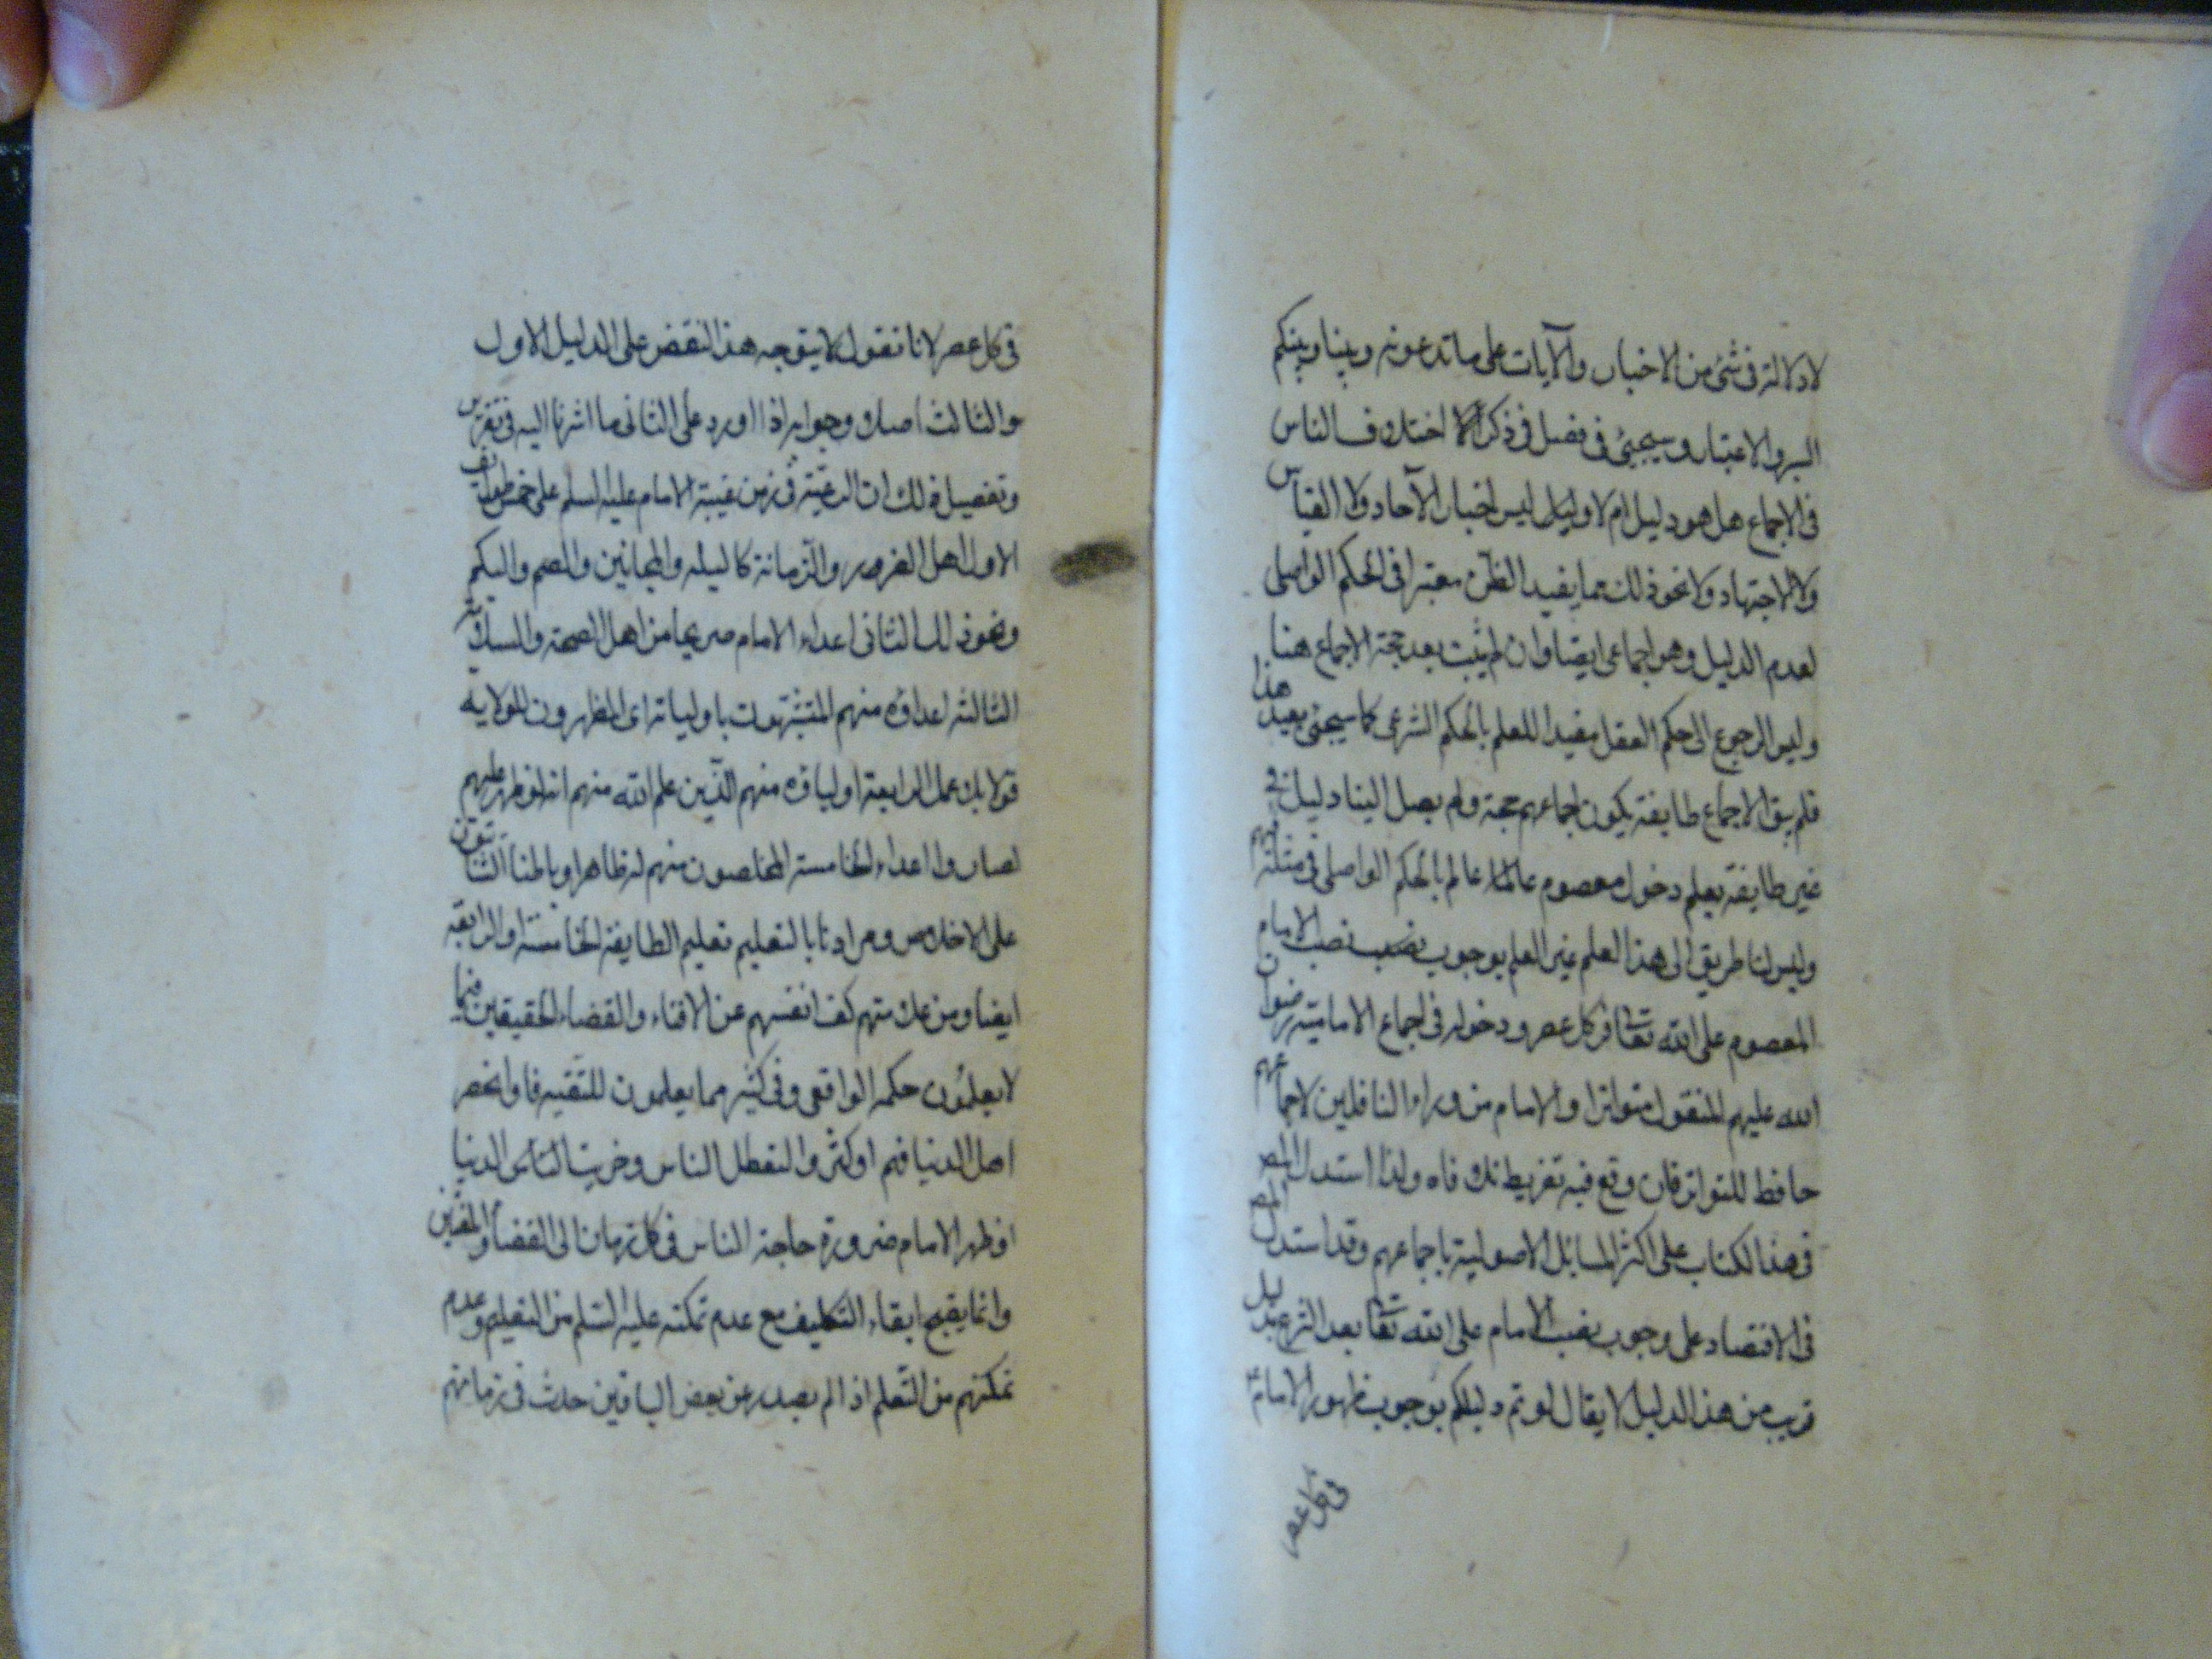 لا دلالة في شئ من الاخبار والآيات على ما تدعونه وبيننا وبينكم
السبر والاعتبار وسيجيئ في فصل في ذكر اختلاف الناس
في الاجماع هل هو دليل ام لا وليس اخبار الآحاد ولا القياس
ولا الاجتهاد ولا نحو ذلك مما يفيد الظن معتبرا في الحكم الواصلى
لعدم الدليل وهو اجماعى ايضا وان لم يثبت بعد حجة الاجماع هنا
وليس الرجوع الى حكم العقل مفيدا للعلم بالحكم الشرعى كما سيجئ بعيد هذا
فلم يبق الا اجماع طايفة يكون اجماعهم حجة ولم يصل الينا دليل في
غير طايفة يعلم دخول معصوم عالم بالحكم الواصلى في مثلة
وليس لنا طريق الى هذا العلم غير العلم بوجوب نصب الامام
المعصوم على الله تعا في كل عصر ودخوله في اجماع الامامية رضوان
الله عليهم المنقول متواترا والامام من وراء الناقلين لاجماعهم
حافظ للتواتر فان وقع فيه تفريط تلافاه ولذا استدل المص
في هذا الكتاب على اكثر المسايل الاصولية باجماعهم وقد استدل المص
في الاقتصاد على وجوب نصب الامام على الله تعا بعد الشرع بدليل
قريب من هذا الدليل لا يقال لو تم دليلكم بوجوب ظهور الامام ع
في كل عصر
في كل عصر لانا نقول لا يتوجه هذا النقض على الدليل الاول
والثالث اصلا وجوابه اذا اورد على الثانى ما اشرنا اليه في تقرير
وتفصيل ذلك ان الرعيّة في زمن غيبة الامام عليه السلم على خمس طوايف
الاولى اهل الضرورة والزمانة كالبله والمجانين والصم والبكم
ونحو ذلك الثانى اعداء الامام صريحا من اهل الصحة والسلامة
الثالثة اعداؤه منهم المتشبّهون باوليائه اى المظهرون للولاية
قولا بلا عمل الرابعة اولياؤه منهم الذين علم الله منهم انه لو ظهر عليهم
لصاروا اعداء الخامسة المخلصون منهم له ظاهرا وباطنا الثابتون
على الاخلاص ومرادنا بالتعليم تعليم الطايفة الخامسة والرابعة
ايضا ومن عملهم كف انفسهم عن الافتاء والقضاء الحقيقين فيما
لا يعلمون حكمه الواقعى وفي كثير مما يعلمون للتقية فلو انحصر
اهل الدنيا فيهم او كثروا لتعطل الناس وخربت الدنيا
او ظهر الامام ضرورة حاجة الناس في كل زمان الى القضاة والمفتين
وانما يقبح ابقاء التكليف مع عدم تمكنه عليه السلم من التعليم وعدم
تمكنهم من التعلم اذا لم يصدر عن بعض الباقين حدث في زمانهم